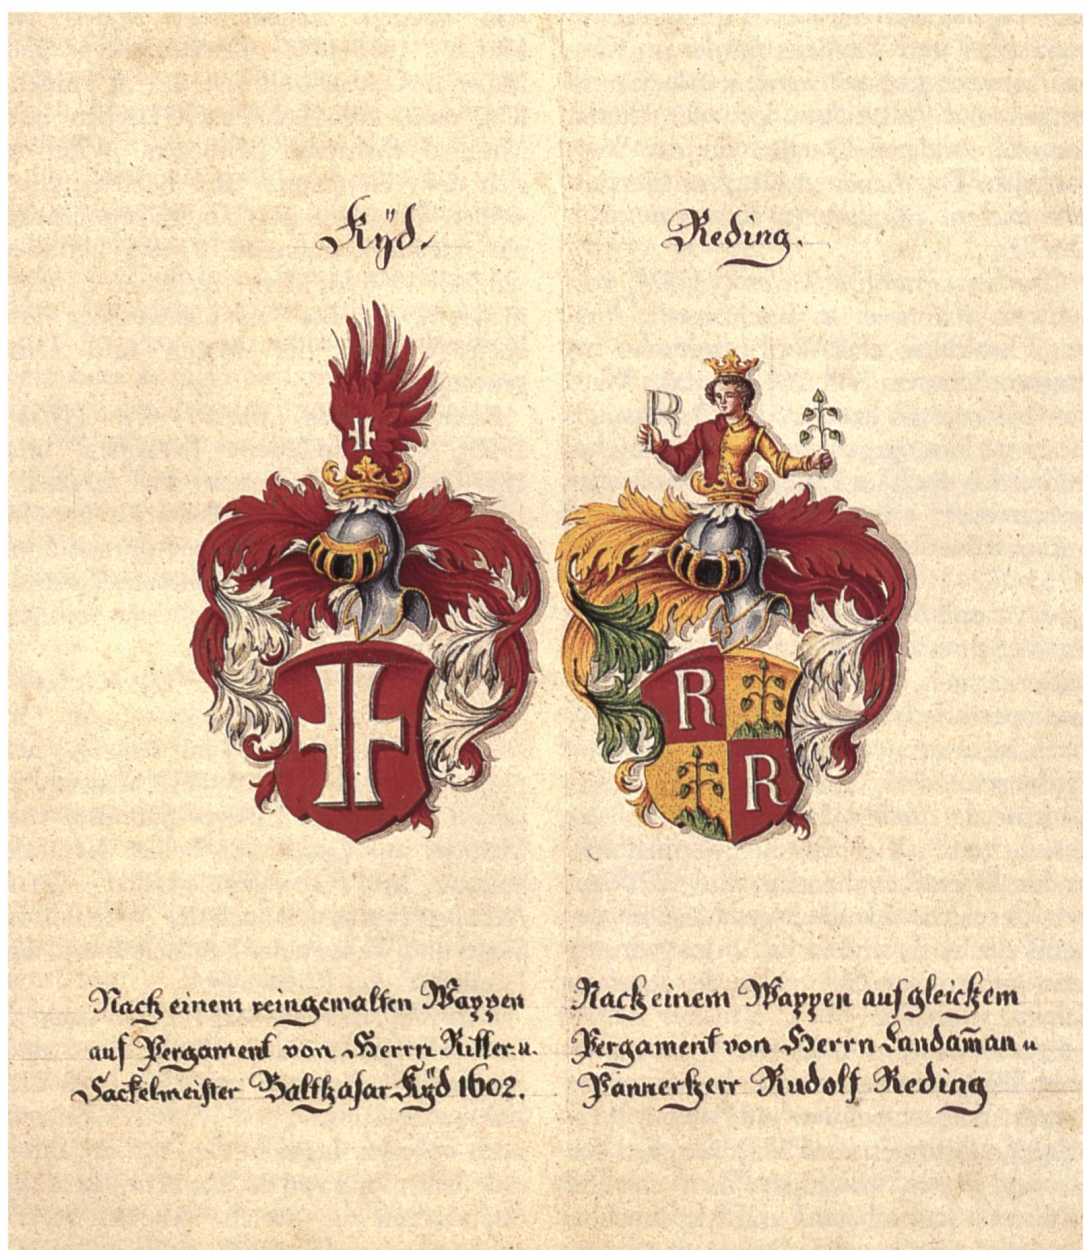 Kÿd.
Reding.
R
R
R
Nach einem reingemalten Wappen
auf Pergament von Herrn Ritter u.
Sackelmeister Balthasar Kÿd 1602.
Nach einem Wappen auf gleichem
Pergament von Herrn Landam̅an u
Pannerherr Rudolf Reding